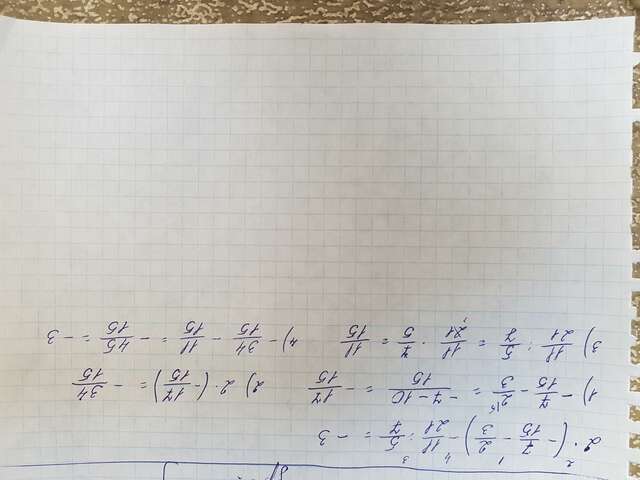 2·(-7/15 - 2/3) - 11/21 : 5/7 = -3
1) -7/15 - 2/3 = (-7-10)/15 = -17/15 2) 2·(-17/15) = -34/15
3) 11/21 : 5/7 = 11/21 · 7/5 = 11/15 4) -34/15 - 11/15 = -45/15 = -3